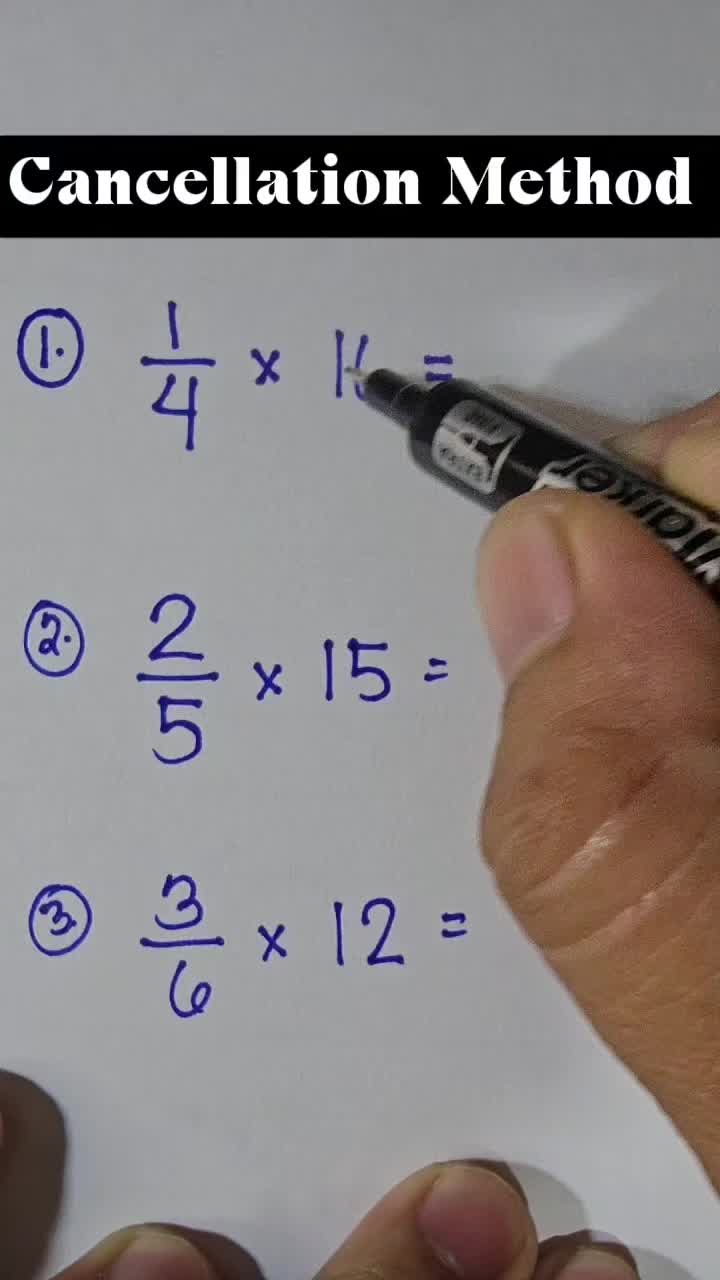 Cancellation Method
1. 1/4 × 1 =
2. 2/5 × 15 =
3. 3/6 × 12 =
Marker